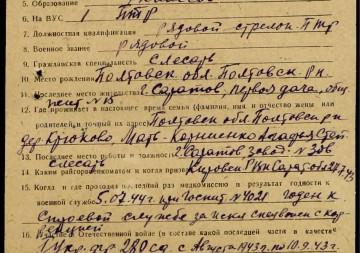 5. Образование
6. На ВУС 1 ПТР
7. Должностная квалификация рядовой стрелок ПТР
8. Военное звание рядовой
9. Гражданская специальность Слесарь
10. Место рождения Полтовск. обл. Полтовск. р-н.
11. Последнее место жительства г. Саратов, первая дача, общ
12. Где проживает в настоящее время семья (фамилия, имя, и отчество жены или
родителей) и точный их адрес Полтовск обл Полтовск р-н
дер Крюково, Мать-Корниенко
13. Последнее место работы и должность г. Саратов завод №306
слесарь
14. Каким райгорвоенкоматом и когда призван Кировск РВК г Саратов
15. Когда и где проходил последний раз медкомиссию и результат годности к
военной службе 5.07.44г. при Госпит №4021 годен к
строевой службе
16. Отечественной войне (в составе какой последней части в качестве
1 Укр. фр 280 сд с Августа 1943г. по 10.9.43г.